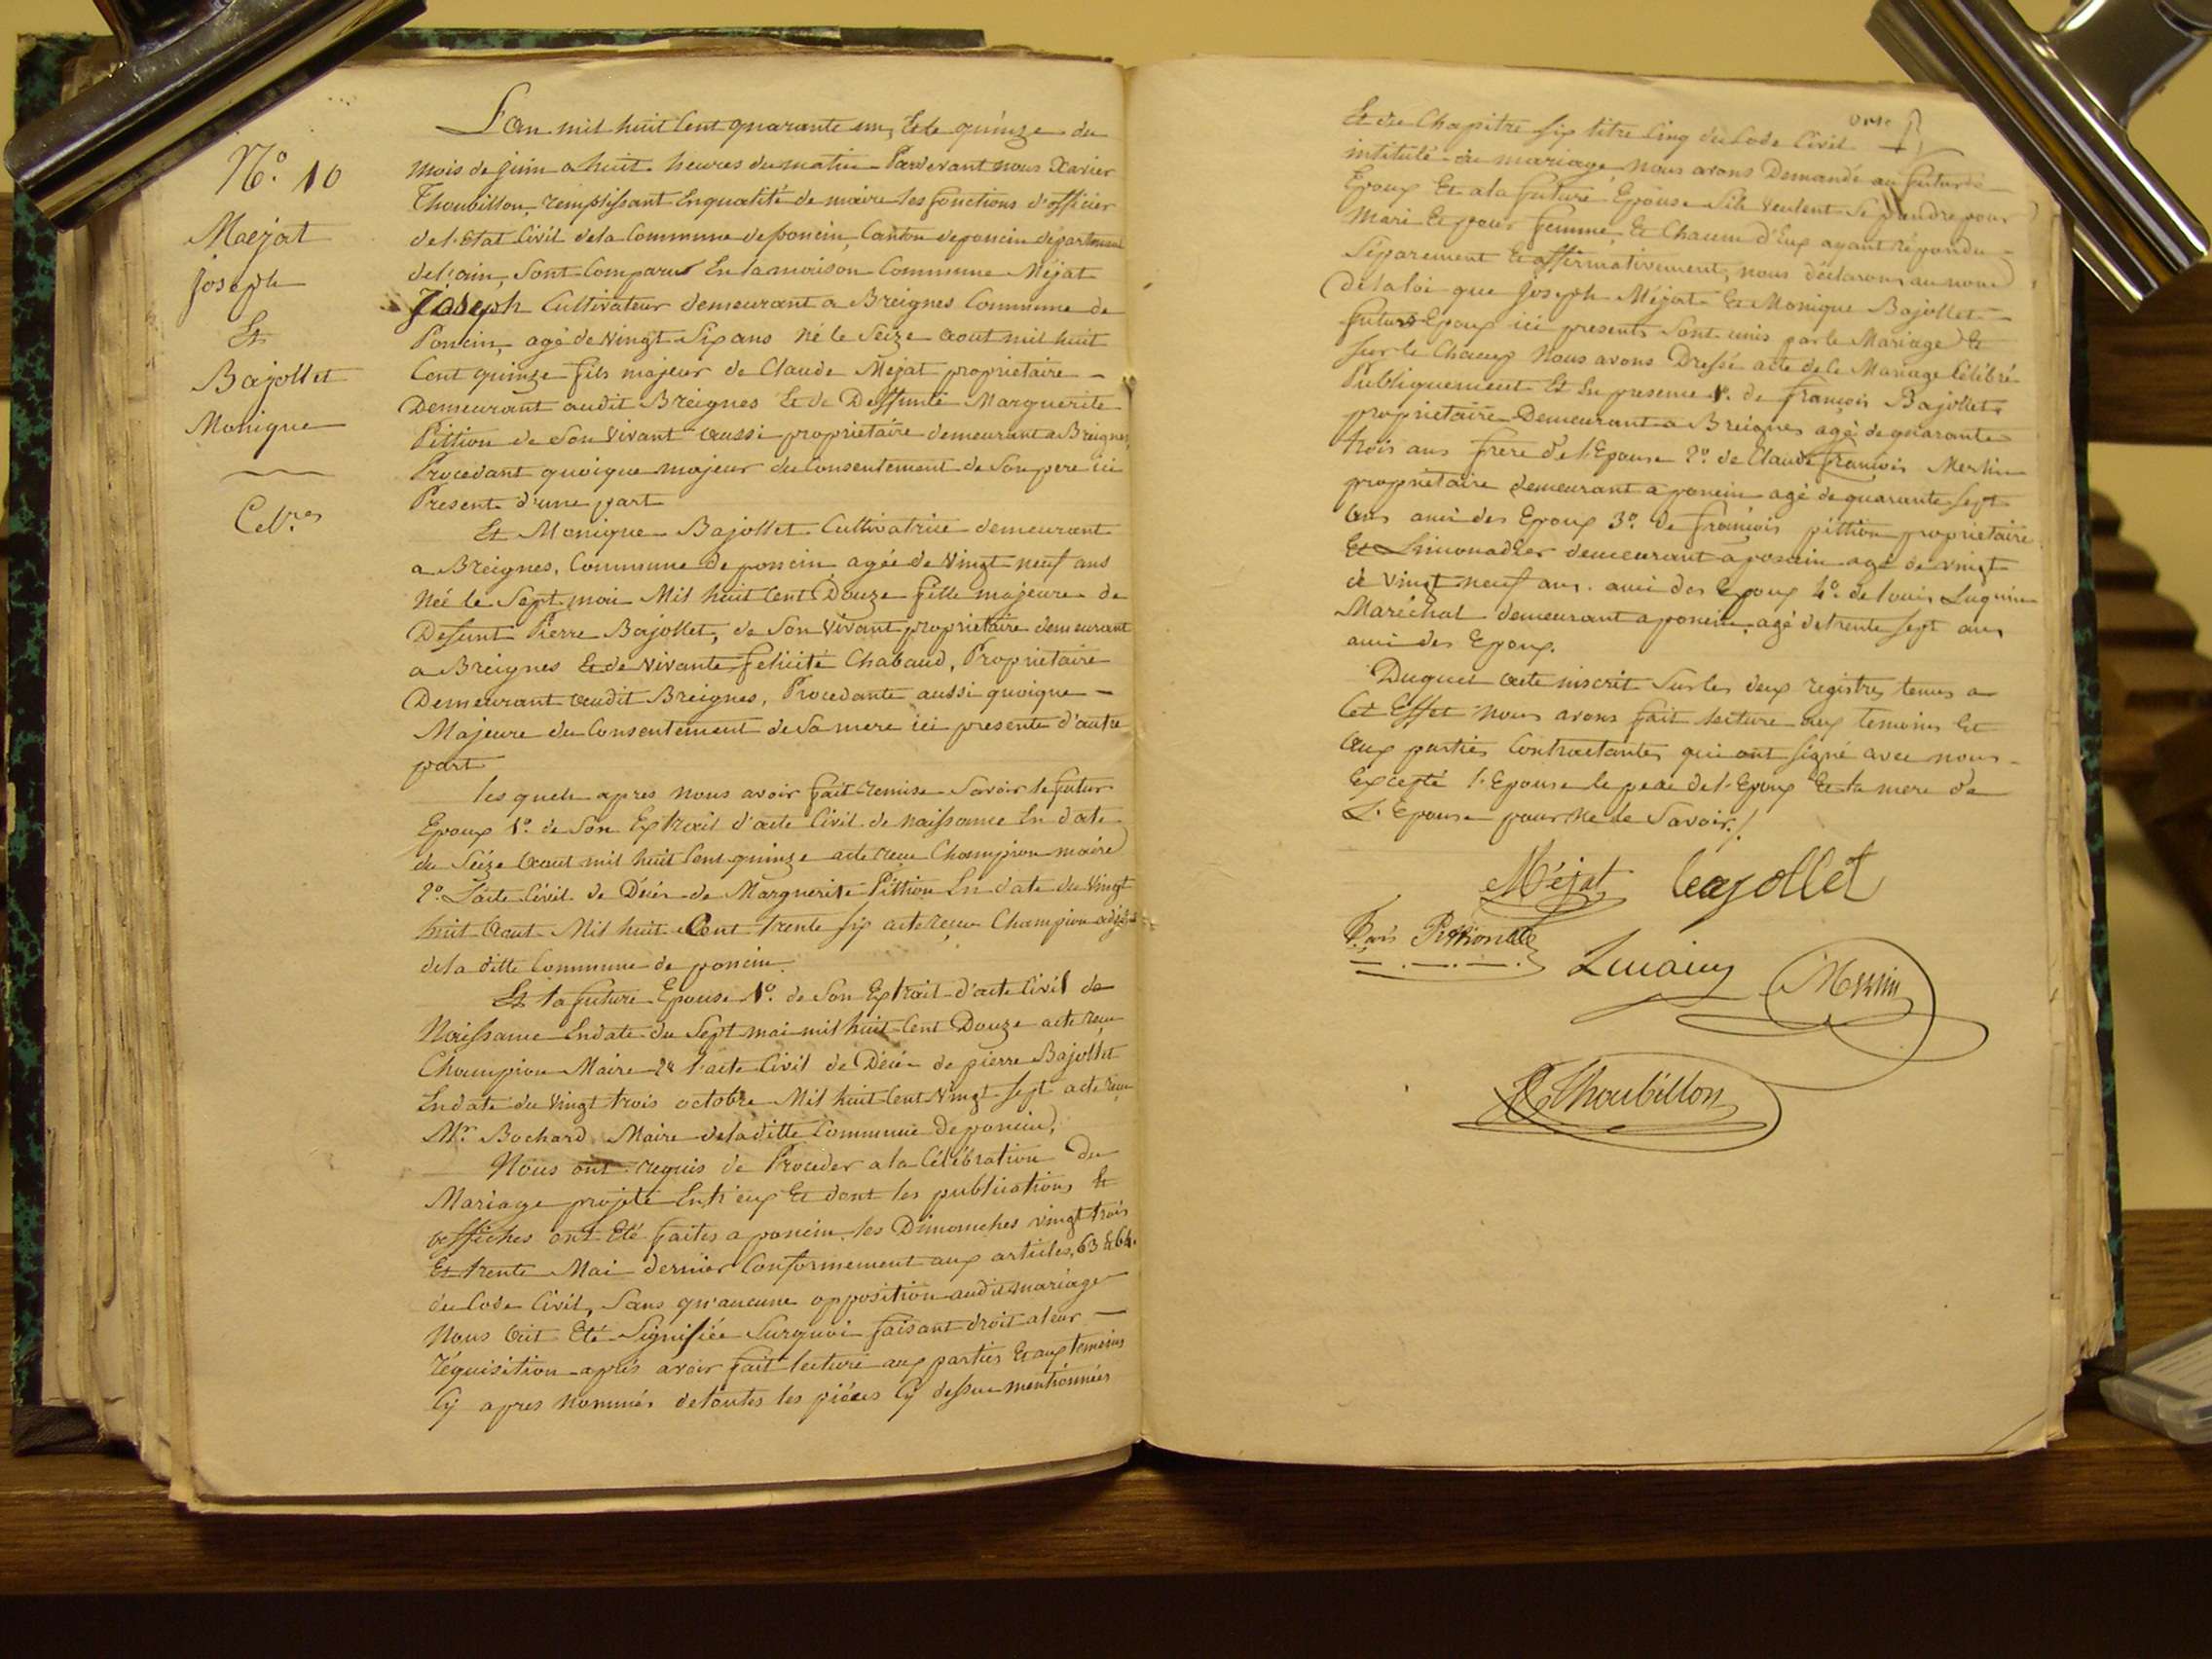 N.° 10
Maejat
joseph
Et
Bajollet
Monique
Celb.res
L'an mil huit Cent quarante un, Et le quinze du
mois de juin a huit heures du matin Pardevant nous Xavier
Thoubillon, remplissant En qualité de maire les fonctions d'officier
de l'Etat Civil de la Commune de poncin, Canton de poncin département
de l'ain, Sont Comparus En la maison Commune Méjat
Joseph Cultivateur demeurant a Breignes Commune de
Poncin, agé de Vingt Six ans né le Seize aout mil huit
Cent quinze fils majeur de Claude Mejat proprietaire -
Demeurant audit Breignes Et de Deffunte Marguerite
Pittion de Son Vivant aussi proprietaire demeurant a Breignes,
Procedant quoique majeur du Consentement de Son pere ici
Present d'une part
Et Monique Bajollet Cultivatrice demeurant
a Breignes, Commune de poncin agée de Vingt neuf ans
Née le Sept mai Mil huit Cent Douze fille majeure de
Defunt Pierre Bajollet, de Son Vivant proprietaire demeurant
a Breignes Et de vivante felicité Chabaud, Proprietaire
Demeurant audit Breignes, Procedante aussi quoique -
Majeure du Consentement de Sa mere ici presente d'autre
part
les quels apres nous avoir fait remise Savoir le futur
Epoux 1.° de Son Extrait d'acte Civil de naissance En date
du Seize aout mil huit Cent quinze acte recu Champion maire
2.° L'acte Civil de Décès de Marguerite Pittion En date du Vingt
huit aout Mil huit Cent trente Six acte reçu Champion adjoint
de la ditte Commune de poncin.
Et la future Epouse 1.° de Son Extrait d'acte Civil de
Naissance En date du Sept mai mil huit Cent Douze acte reçu
Champion Maire 2° l'acte Civil de Décès de pierre Bajollet
En date du Vingt trois octobre Mil huit Cent Vingt Sept acte reçu
Mr. Bochard Maire de la ditte Commune de poncin,
Nous ont requis de Proceder a la Célébration du
Mariage projeté Entr'eux Et dont les publications Et
affiches ont Eté faites a poncin, les Dimanches vingt trois
Et trente Mai dernier Conformement aux articles, 63 & 64.
du Code Civil, Sans qu'aucune opposition audit mariage
Nous ait Eté Signifiée Surquoi faisant droit a leur -
réquisition après avoir fait lecture aux parties Et aux temoins
Cy apres Nommés de toutes les pièces Cy dessus mentionnées
Et du Chapitre Six titre Cinq du Code Civil
intitulé du mariage nous avons Demandé au futur
Epoux Et a la future Epouse S'ils veulent Se prendre pour
Mari Et pour femme, Et Chacun d'Eux ayant répondu -
Séparement Et affirmativement, nous déclarons au nom
de la loi que Joseph Méjat Et Monique Bajollet -
futurs Epoux ici presents Sont unis par le Mariage Et
Sur le Champ Nous avons Dressé acte de le Mariage Célébré
Publiquement Et En presence 1.° de françois Bajollet
proprietaire Demeurant a Breignes agé de quarante
trois ans frere de l'Epouse 2.° de Claude françois Merlin
proprietaire demeurant a poncin agé de quarante Sept
ans ami des Epoux 3.° de françois pittion proprietaire
Et Limonadier demeurant a poncin agé de vingt
de vingt neuf ans. ami des Epoux 4.° de louis Luguin
Maréchal demeurant a poncin, agé de trente Sept ans
ami des Epoux.
Duquel acte inscrit Sur les deux registres tenus a
Cet Effet nous avons fait lecture aux temoins Et
aux parties Contractantes qui ont Signé avec nous -
Excepté l'Epouse le pere de l'Epoux Et la mere de
L'Epouse pour Ne le Savoir./.
Méjat Bajollet
Merlin
Thoubillon